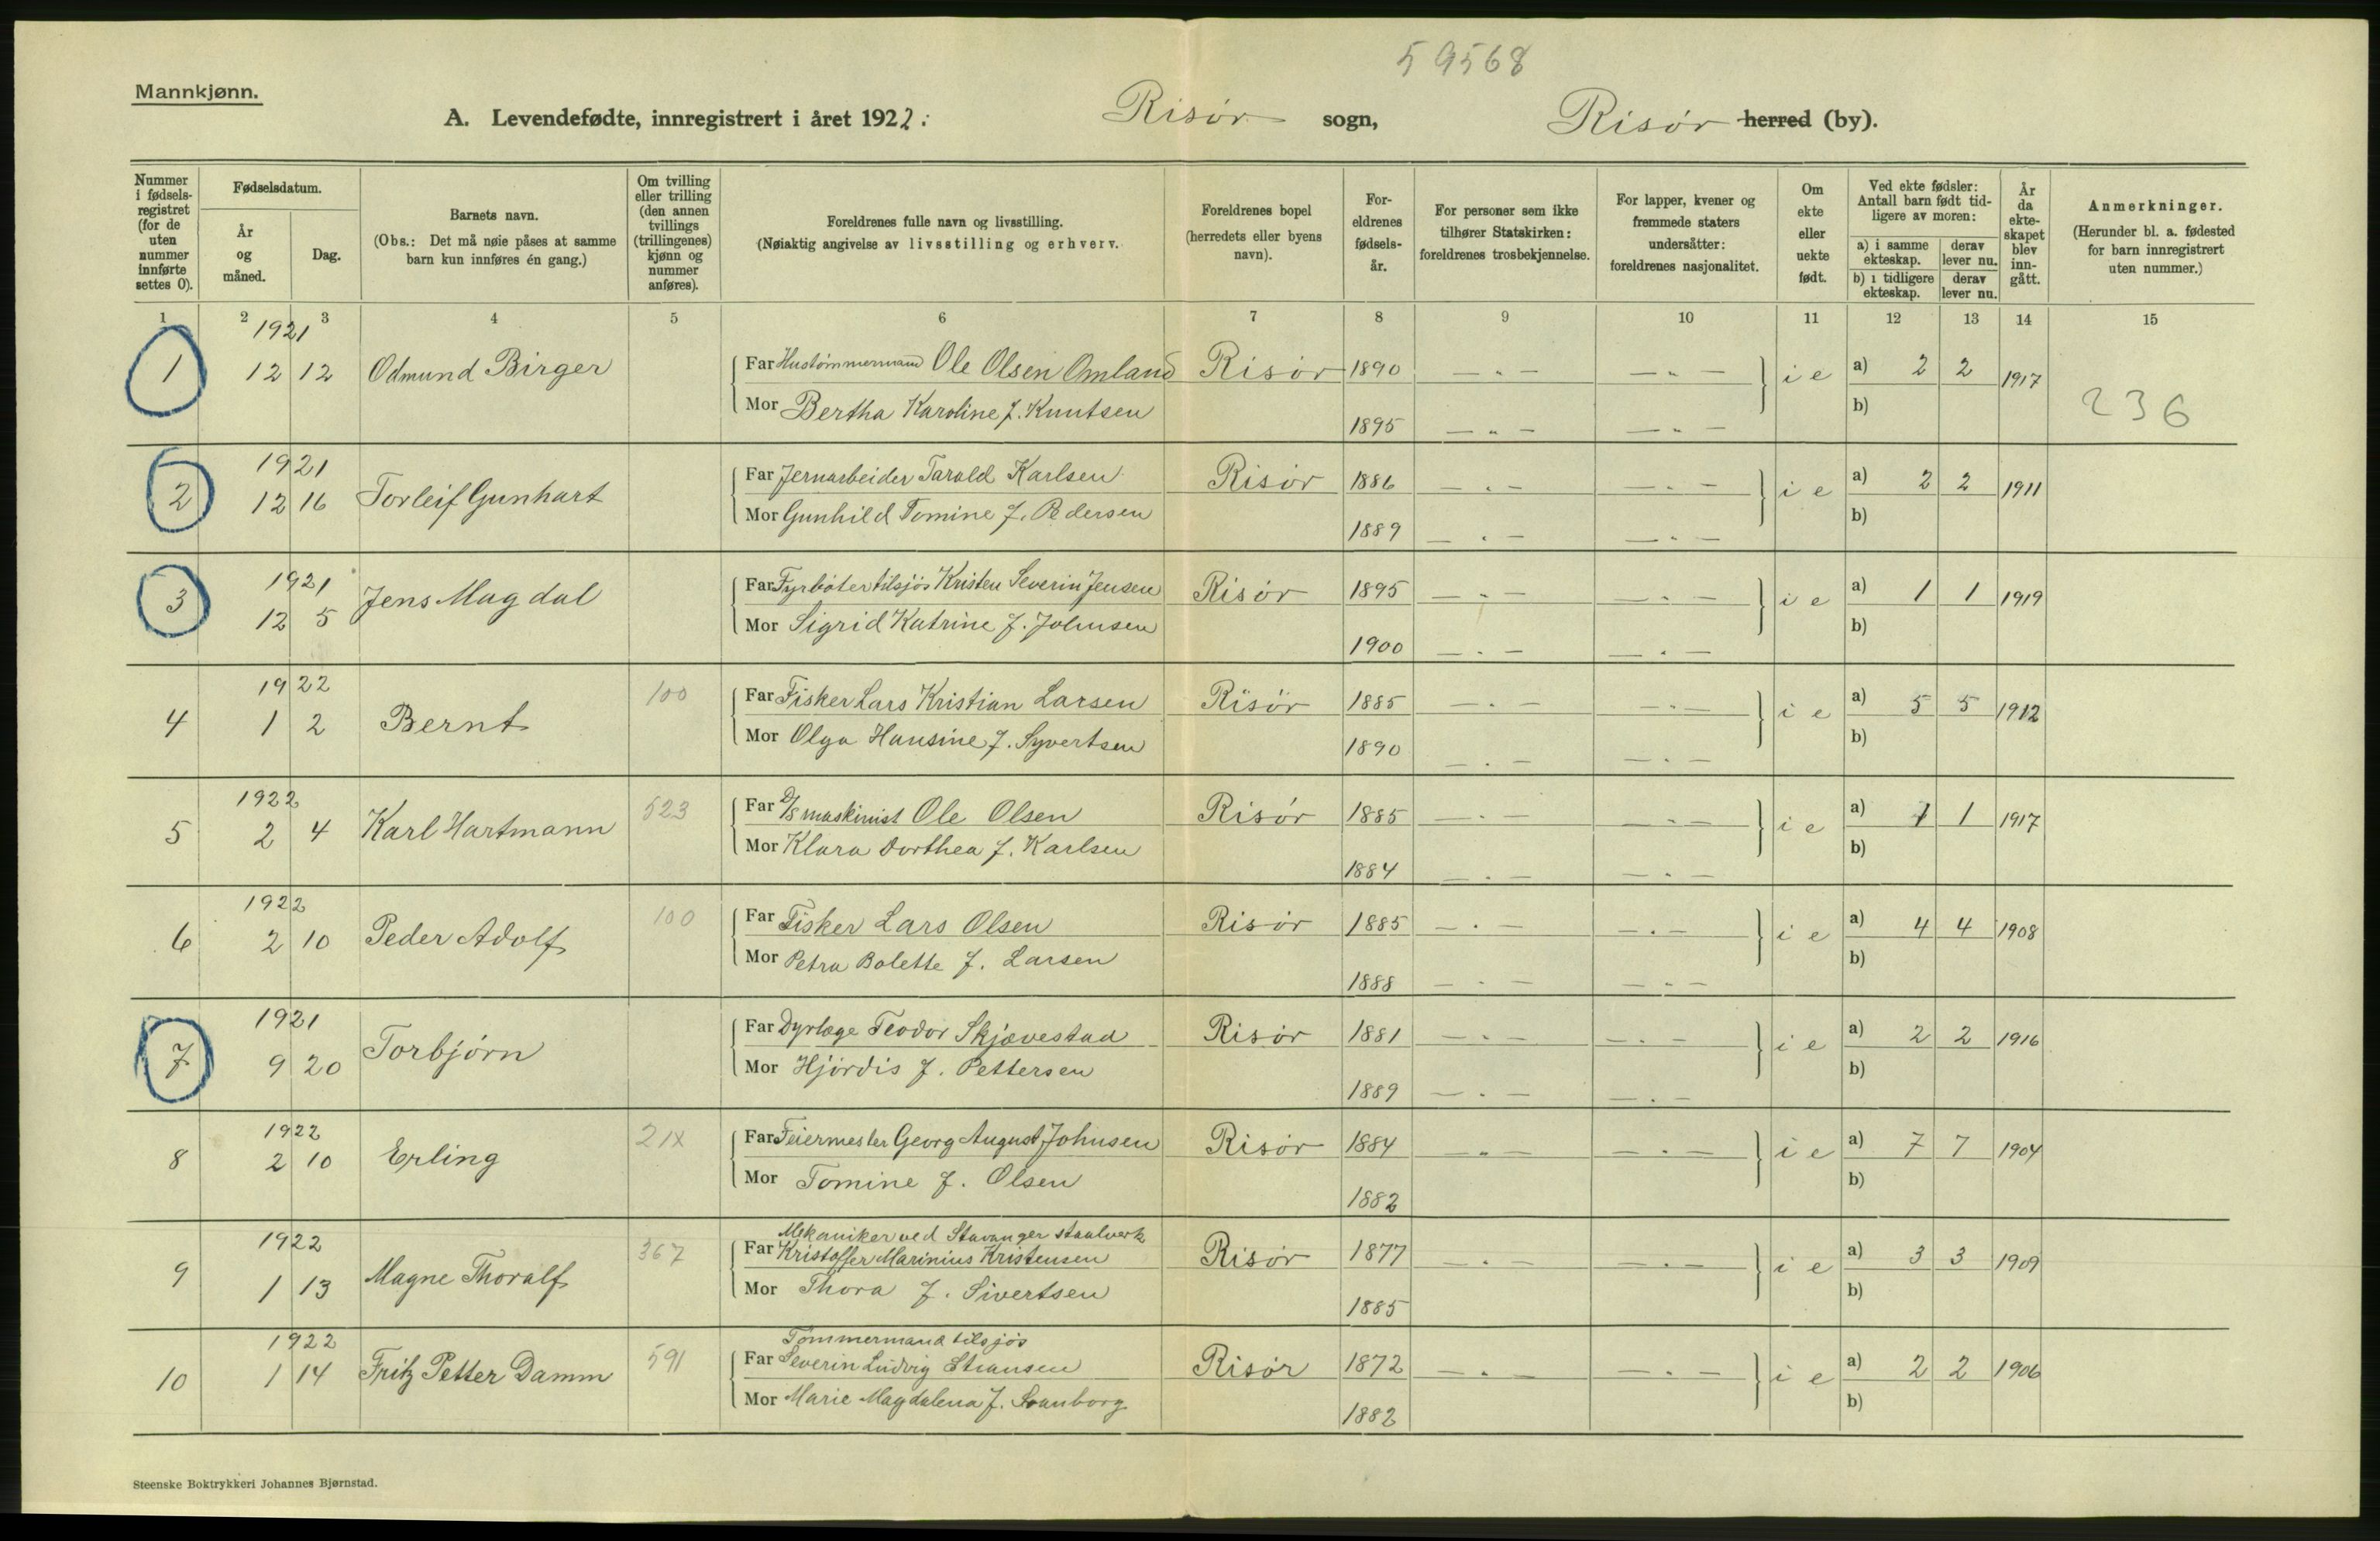 59568
Mannkjønn.
A. Levendefødte, innregistrert i året 1922: Risør sogn, Risør herred (by).
Nummer i fødsels-registret (for de uten nummer innførte settes 0).
Fødselsdatum.
År og måned.
Dag.
Barnets navn.
(Obs.: Det må nøie påses at samme barn kun innføres én gang.)
Om tvilling eller trilling (den annen tvillings (trillingenes) kjønn og nummer anføres).
Foreldrenes fulle navn og livsstilling.
(Nøiaktig angivelse av livsstilling og erhverv.
Foreldrenes bopel (herredets eller byens navn).
For-eldrenes fødsels-år.
For personer som ikke tilhører Statskirken: foreldrenes trosbekjennelse.
For lapper, kvener og fremmede staters undersåtter: foreldrenes nasjonalitet.
Om ekte eller uekte født.
Ved ekte fødsler: Antall barn født tid-ligere av moren:
a) i samme ekteskap.
derav lever nu.
b) i tidligere ekteskap.
derav lever nu.
År da ekte-skapet blev inn-gått.
Anmerkninger.
(Herunder bl. a. fødested for barn innregistrert uten nummer.)
1 2 3 4 5 6 7 8 9 10 11 12 13 14 15
1921
1 12 12 Odmund Birger Far Hustømmermand Ole Olsen Omland Risør 1890 — " — — " — i e a) 2 2 1917
Mor Bertha Karoline f. Knutsen 1895 — " — — " — b) 236
1921
2 12 16 Torleif Gunhart Far Jernarbeider Tarald Karlsen Risør 1886 — " — — " — i e a) 2 2 1911
Mor Gunhild Tomine f. Pedersen 1889 — " — — " — b)
1921
3 12 5 Jens Magdal Far Fyrbøter tilsjøs Kristen Severin Jensen Risør 1895 — " — — " — i e a) 1 1 1919
Mor Sigrid Katrine f. Johnsen 1900 — " — — " — b)
1922
4 1 2 Bernt 100 Far Fisker Lars Kristian Larsen Risør 1885 — " — — " — i e a) 5 5 1912
Mor Olga Hansine f. Syvertsen 1890 — " — — " — b)
1922
5 2 4 Karl Hartmann 523 Far D/S maskinist Ole Olsen Risør 1885 — " — — " — i e a) 1 1 1917
Mor Klara Dorthea f. Karlsen 1884 — " — — " — b)
1922
6 2 10 Peder Adolf 100 Far Fisker Lars Olsen Risør 1885 — " — — " — i e a) 4 4 1908
Mor Petra Bolette f. Larsen 1888 — " — — " — b)
1921
7 9 20 Torbjørn Far Dyrlæge Teodor Skjævestad Risør 1881 — " — — " — i e a) 2 2 1916
Mor Hjørdis f. Pettersen 1889 — " — — " — b)
1922
8 2 10 Erling 21X Far Feiermester Georg August Johnsen Risør 1884 — " — — " — i e a) 7 7 1904
Mor Tomine f. Olsen 1882 b)
1922 Mekaniker ved Stavanger staalverk
9 1 13 Magne Thoralf 367 Far Kristoffer Marinius Kristensen Risør 1877 — " — — " — i e a) 3 3 1909
Mor Thora f. Sivertsen 1885 b)
1922 Tømmermand tilsjøs
10 1 14 Fritz Petter Damm 591 Far Severin Ludvig Stiansen Risør 1872 — " — — " — i e a) 2 2 1906
Mor Marie Magdalena f. Svanborg 1882 b)
Steenske Boktrykkeri Johannes Bjørnstad.